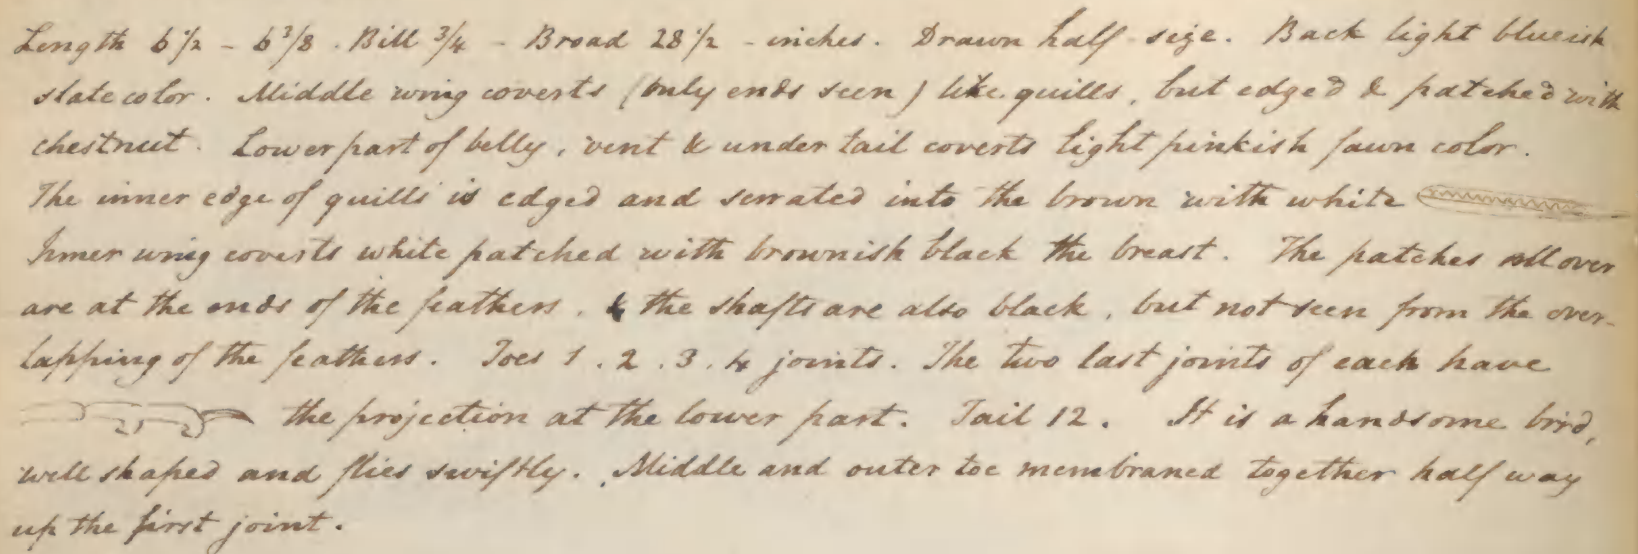 Length 6 1/2 - 6 3/8. Bill 3/4 - Broad 28 1/2 - inches. Drawn half-size. Back light blueish
slate color. Middle wing coverts (only ends seen) like quills, but edged & patched with
chestnut. Lower part of belly, vent & under tail coverts light pinkish fawn color.
The inner edge of quills is edged and serrated into the brown with white
Inner wing coverts white patched with brownish black the breast. The patches all over
are at the ends of the feathers, & the shafts are also black, but not seen from the over-
lapping of the feathers. Toes 1.2.3.4 joints. The two last joints of each have
the projection at the lower part. Tail 12. It is a handsome bird,
well shaped and flies swiftly. Middle and outer toe membraned together half way
up the first joint.